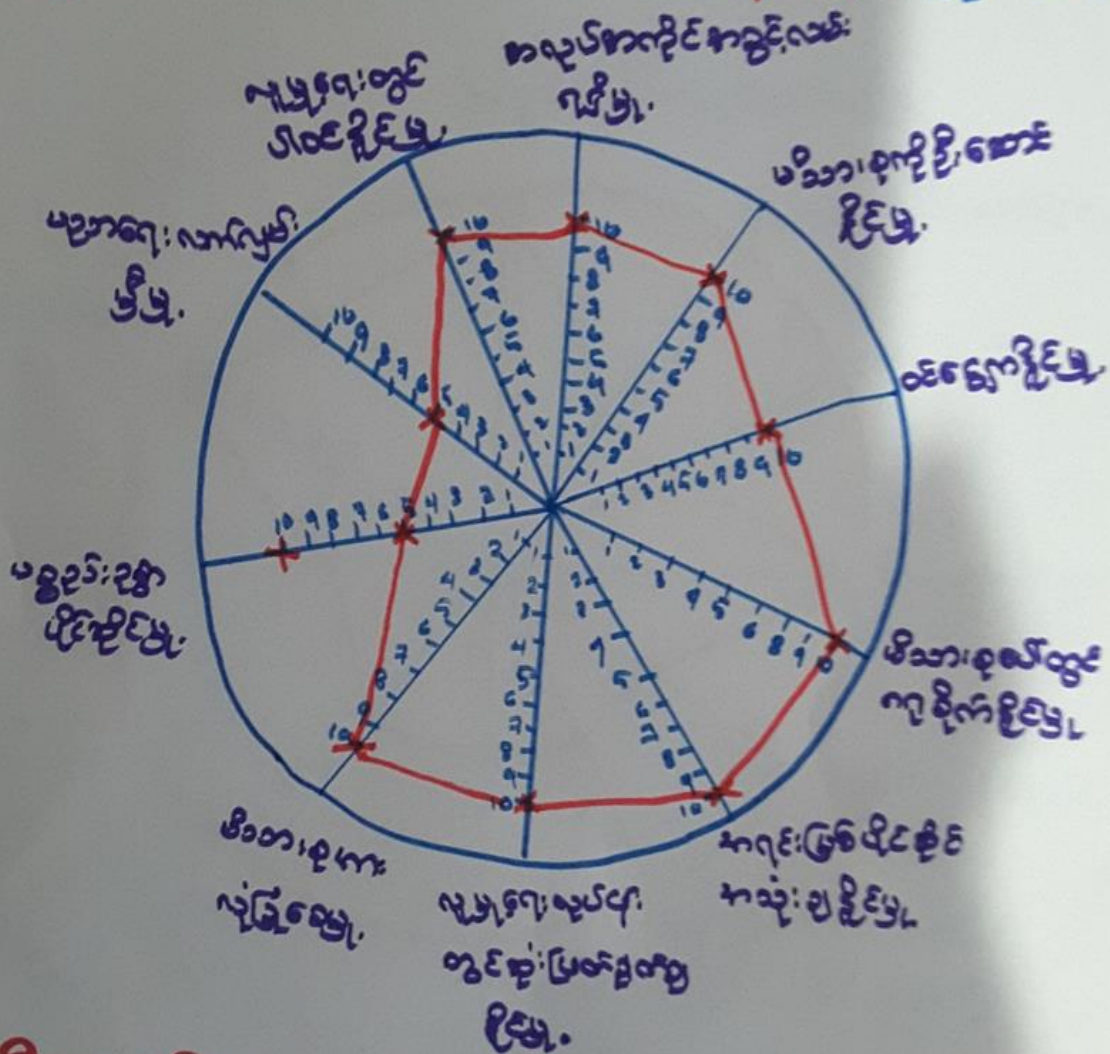 အလုပ်အကိုင်အခွင့်လမ်း
ရရှိမှု.
မိသားစုကိုဦးဆောင်
နိုင်မှု.
ဝင်ငွေရှာနိုင်မှု.
မိသားစုပေါ်တွင်
ဂရုစိုက်နိုင်မှု.
အရင်းမြစ်ပိုင်ဆိုင်
အသုံးချနိုင်မှု.
လူမှုရေးလုပ်ငန်း
တွင်ဆုံးဖြတ်ချက်ချ
နိုင်မှု.
မိသားစုအား
လုံခြုံစေမှု.
ပစ္စည်းဥစ္စာ
ပိုင်ဆိုင်မှု.
ပညာရေးလက်လှမ်း
မှီမှု.
လူမှုရေးတွင်
ပါဝင်နိုင်မှု.
10
9
8
7
6
5
4
3
2
1